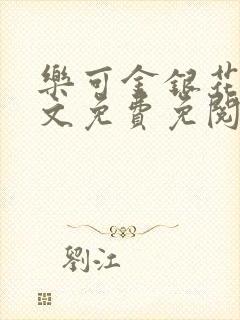 樂可金銀花
文免費免閱
劉江